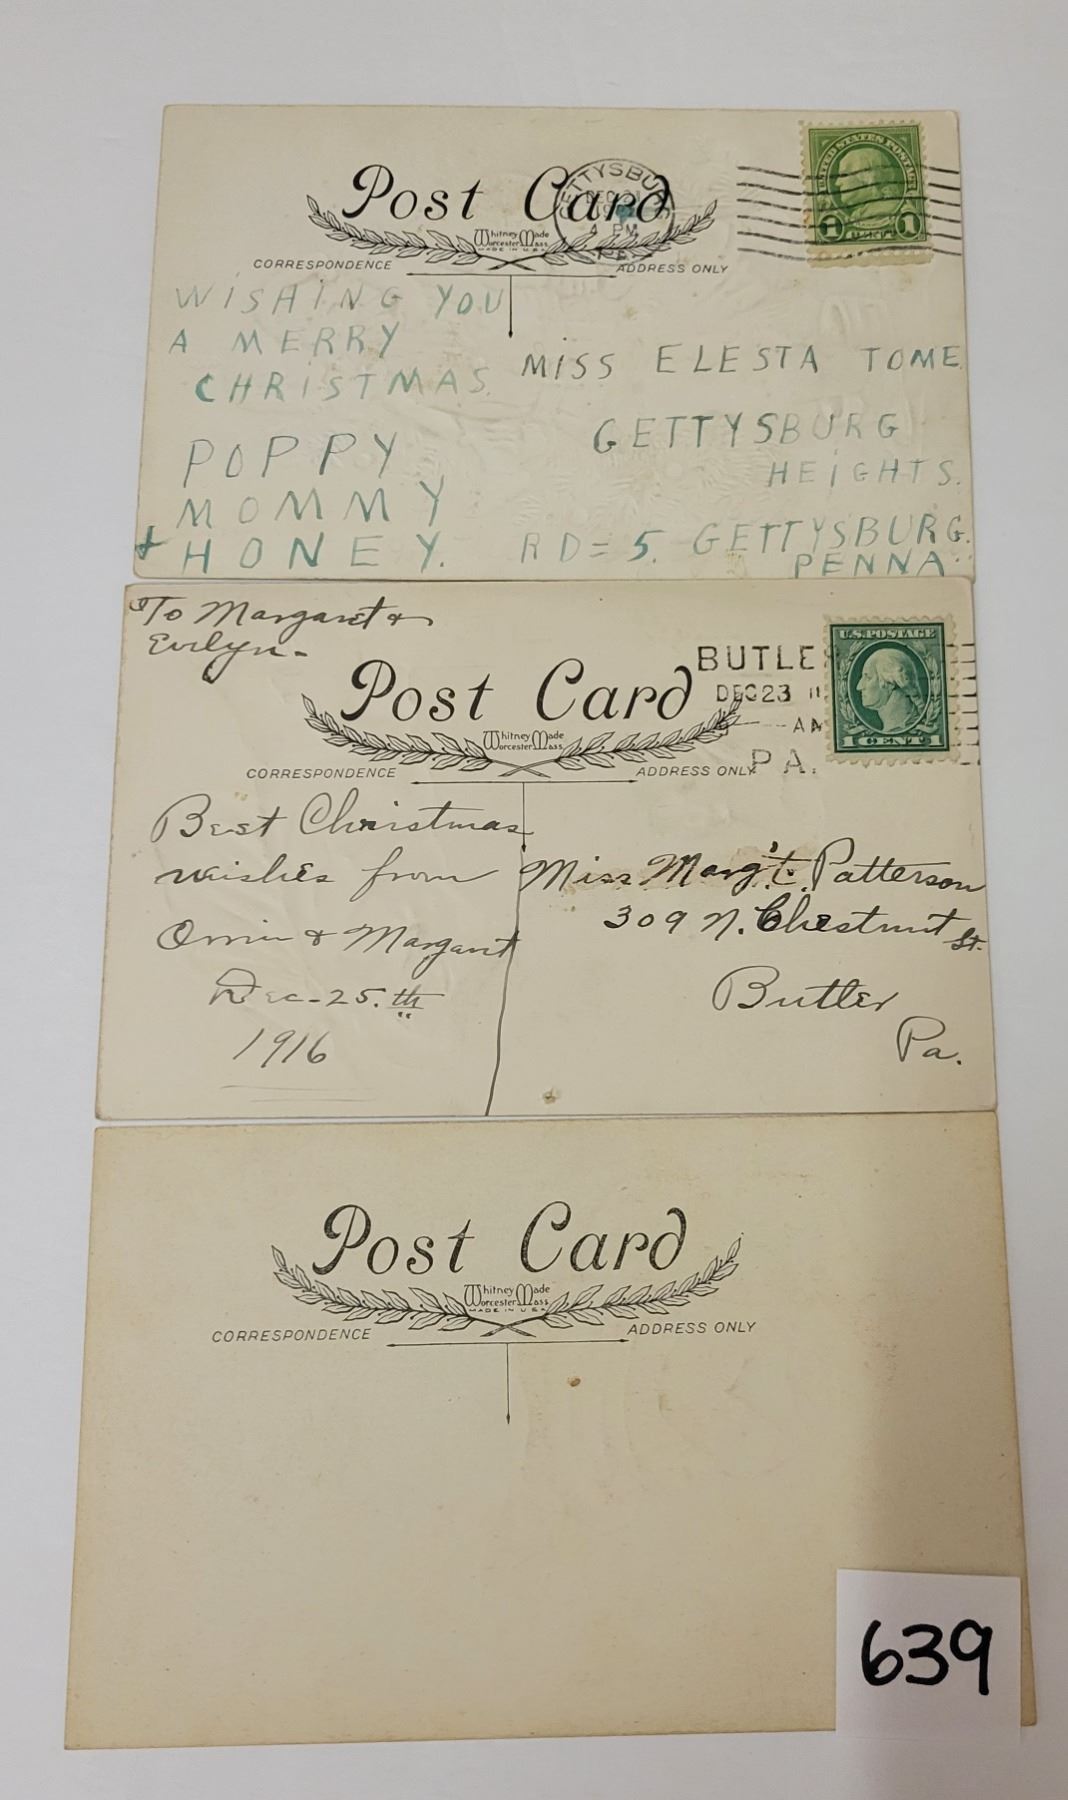 Post Card
Whitney Made
Worcester Mass
MADE IN U.S.A.
CORRESPONDENCE
ADDRESS ONLY
GETTYSBURG
DEC 21
4 PM
UNITED STATES POSTAGE
1 1
WISHING YOU
A MERRY
CHRISTMAS.
POPPY
MOMMY
+ HONEY.
MISS ELESTA TOME
GETTYSBURG
HEIGHTS.
RD = 5. GETTYSBURG.
PENNA
To Margaret &
Evelyn-
Post Card
Whitney Made
Worcester Mass.
CORRESPONDENCE
ADDRESS ONLY
BUTLE
DEC 23 11
AM
PA.
U.S. POSTAGE
1 CENT 1
Best Christmas
wishes from
& Margaret
Dec-25.th
1916
Miss Marg't. Patterson
309 N. Chestnut St.
Butler
Pa.
Post Card
Whitney Made
Worcester Mass
MADE IN U.S.A.
CORRESPONDENCE
ADDRESS ONLY
639